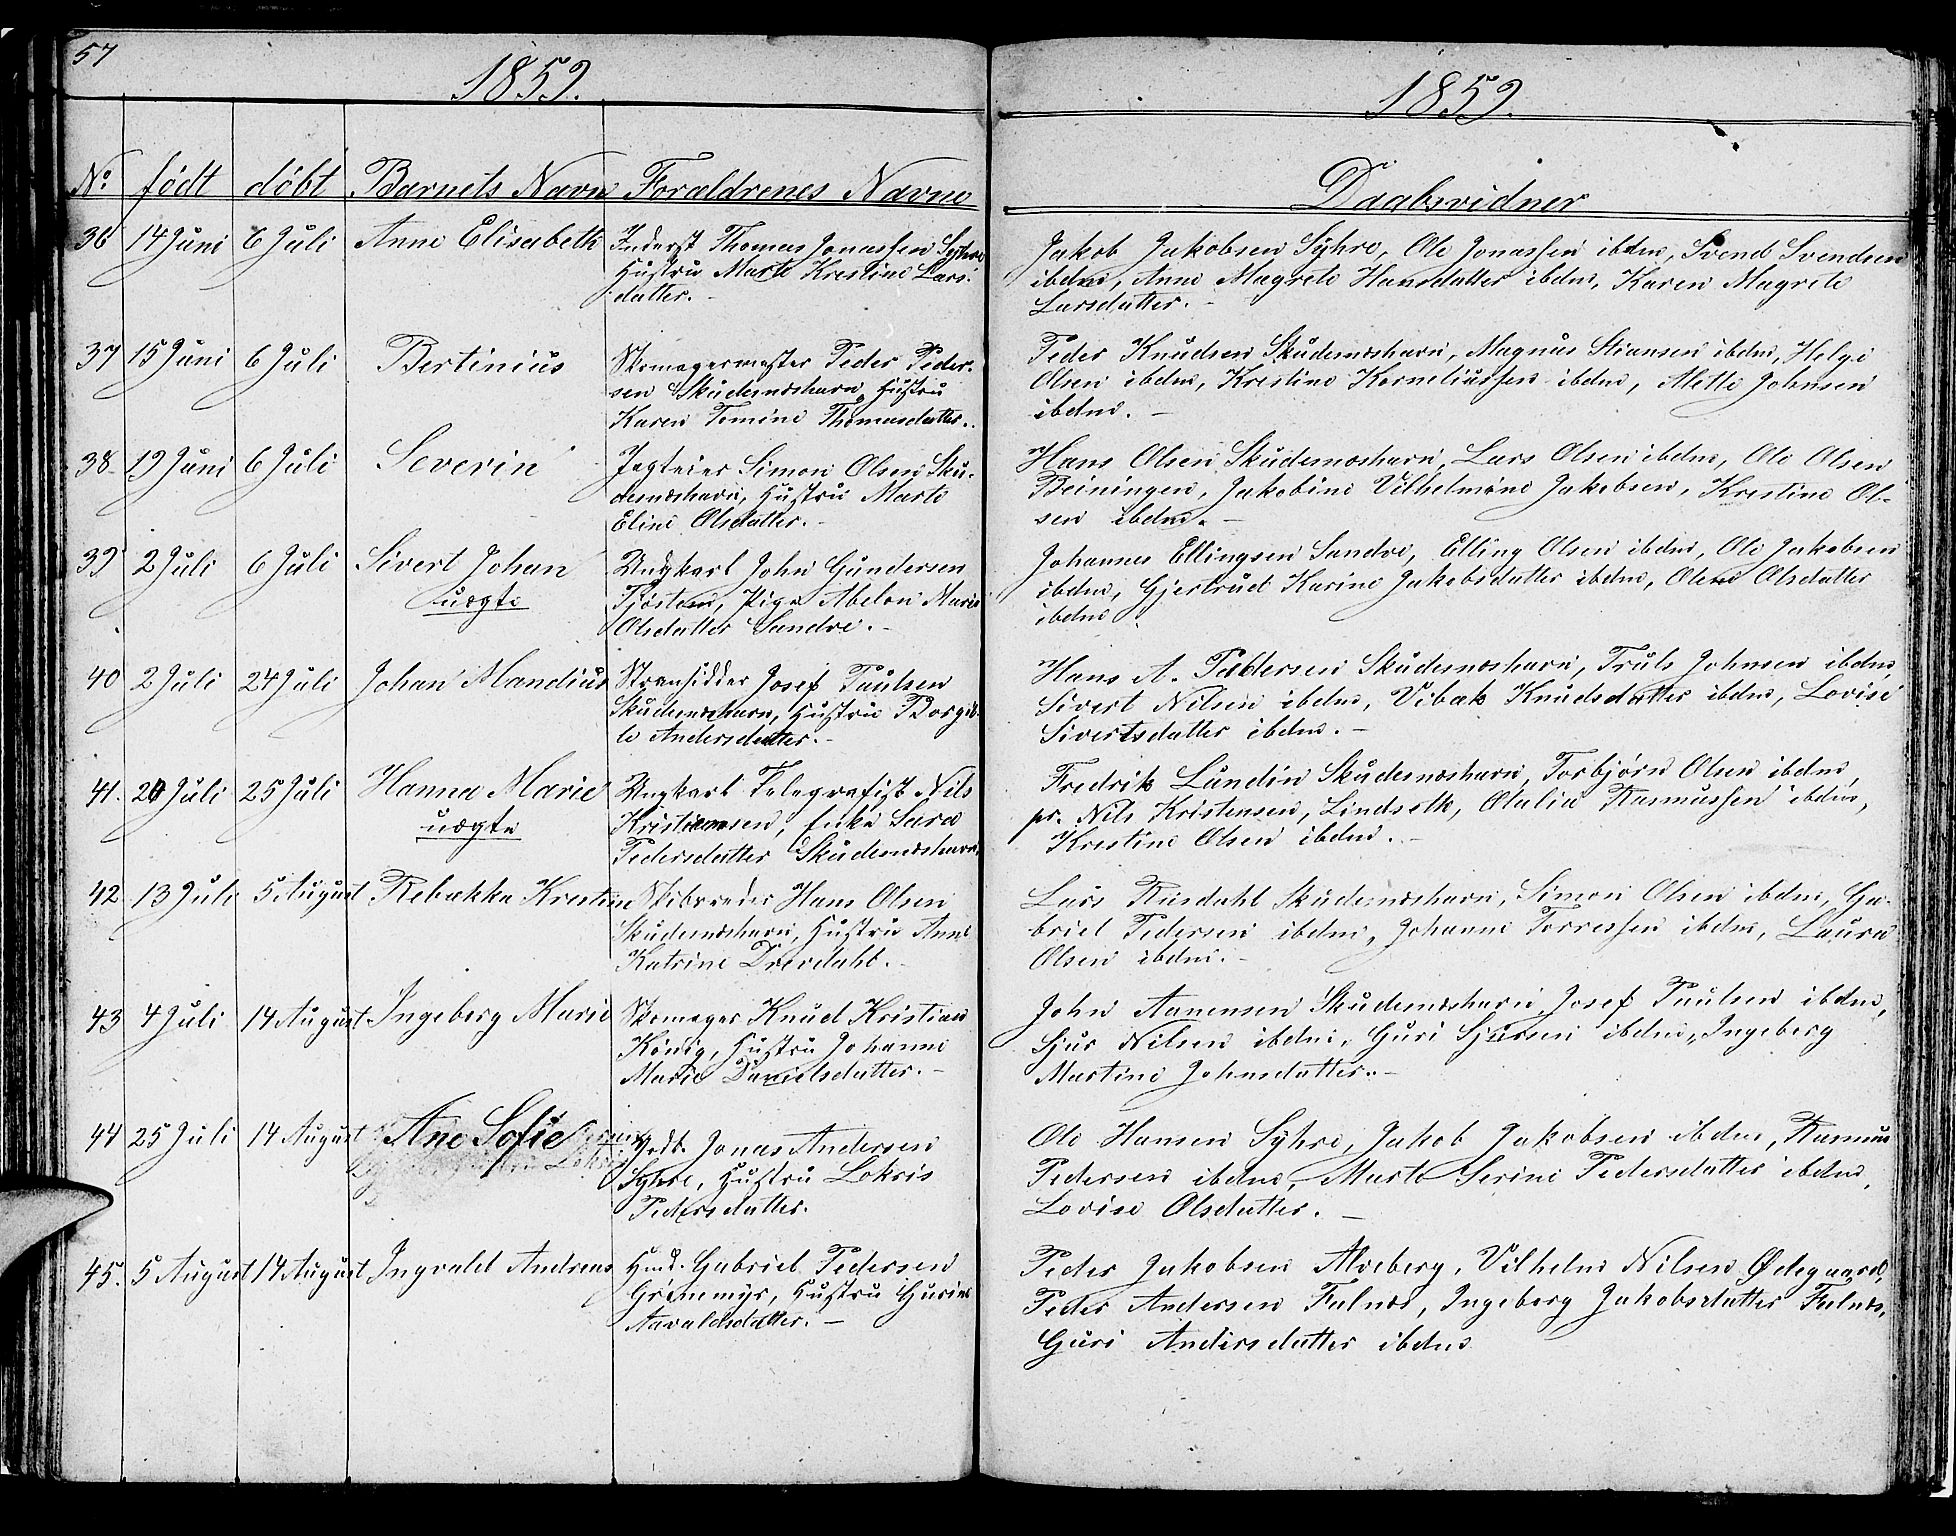 57
1859.
No. født døbt Barnets Navn Forældrenes Navne
36 14 Juni 6 Juli Anne Elisabeth Inderst Thomas Jonassen Syhre
Hustru Marte Kristine Lars-
datter.-
37 15 Juni 6 Juli Bertinius Skomagermester Peder Peder-
sen Skudesnæshavn, Hustru
Karen Tomine Thomasdatter..
38. 19 Juni 6 Juli Severin Jagteier Simon Olsen Sku-
desnæshavn, Hustru Marte
Eline Olsdatter.-
39 2 Juli 6 Juli Sivert Johan Ungkarl John Gundersen
uægte Tjøstem, Pige Abelon Marie
Olsdatter Sandve.-
40 2 Juli 24 Juli Johan Mandius Stransidder Josef Paulsen
Skudesnæshavn, Hustru Borgil-
le Andersdatter.-
41. 20 Juli 25 Juli Hanna Marie Ungkarl Telegrafist Nils
uægte Kristiansen, Enke Sara
Pedersdatter Skudesnæshavn.
42 13 Juli 5 August Rebækka Krestine Skibsreder Hans Olsen
Skudesnæshavn, Hustru Anne
Katrine Drevdahl.-
43 4 Juli 14 August Ingeborg Marie Skomager Knud Kristian
König, Hustru Johanne
Marie Danielsdatter.-
44 25 Juli 14 August Ane Sofie Jonas Andersen
Syhre, Hustru Lokris
Pedersdatter.
45. 5 August 14 August Ingvald Andreas Hmd. Gabriel Pedersen
Grønemyr, Hustru Gurine
Aavaldsdatter.-
1859.
Daabsvidner
Jakob Jakobsen Syhre, Ole Jonassen ibdm, Svend Svendsen
ibdm, Anne Magrete Hansdatter ibdm, Karen Magrete
Larsdatter.-
Peder Knudsen Skudesnæshavn, Magnus Stiansen ibdm, Helge
Olsen ibdm, Kristine Korneliussen ibdm, Mette Johnsen
ibdm.-
Hans Olsen Skudesnæshavn, Lars Olsen ibdm, Ole Olsen
Beiningen, Jakobine Vilhelmine Jakobsen, Kristine Ol-
sen ibdm.-
Johannes Ellingsen Sandve, Elling Olsen ibdm, Ole Jakobsen
ibdm, Gjertrud Karine Jakobsdatter ibdm, Olene Olsdatter
ibdm.
Hans A. Pedersen Skudesnæshavn, Truls Johnsen ibdm,
Sivert Nilsen ibdm, Vibæk Knudsdatter ibdm, Lovise
Sivertsdatter ibdm.-
Fredrik Lundin Skudesnæshavn, Torbjørn Olsen ibdm,
pr. Nils Kristensen, Lindseth, Otalia Rasmussen ibdm,
Kristine Olsen ibdm.-
Lars Risdahl Skudesnæshavn, Simon Olsen ibdm, Ga-
briel Pedersen ibdm, Johanne Torressen ibdm, Laura
Olsen ibdm.-
John Aanensen Skudesnæshavn Josef Paulsen ibdm,
Sjur Nilsen ibdm, Guri Sjursen ibdm, Ingeborg
Martine Johnsdatter.-
Ole Hansen Syhre, Jakob Jakobsen ibdm, Rasmus
Pedersen ibdm, Marte Serine Pedersdatter ibdm,
Lovise Olsdatter.-
Peder Jakobsen Alveberg, Vilhelm Nilsen Ødegaard,
Peder Andersen Falnæs, Ingeborg Jakobsdatter Falnæs,
Guri Andersdatter ibdm